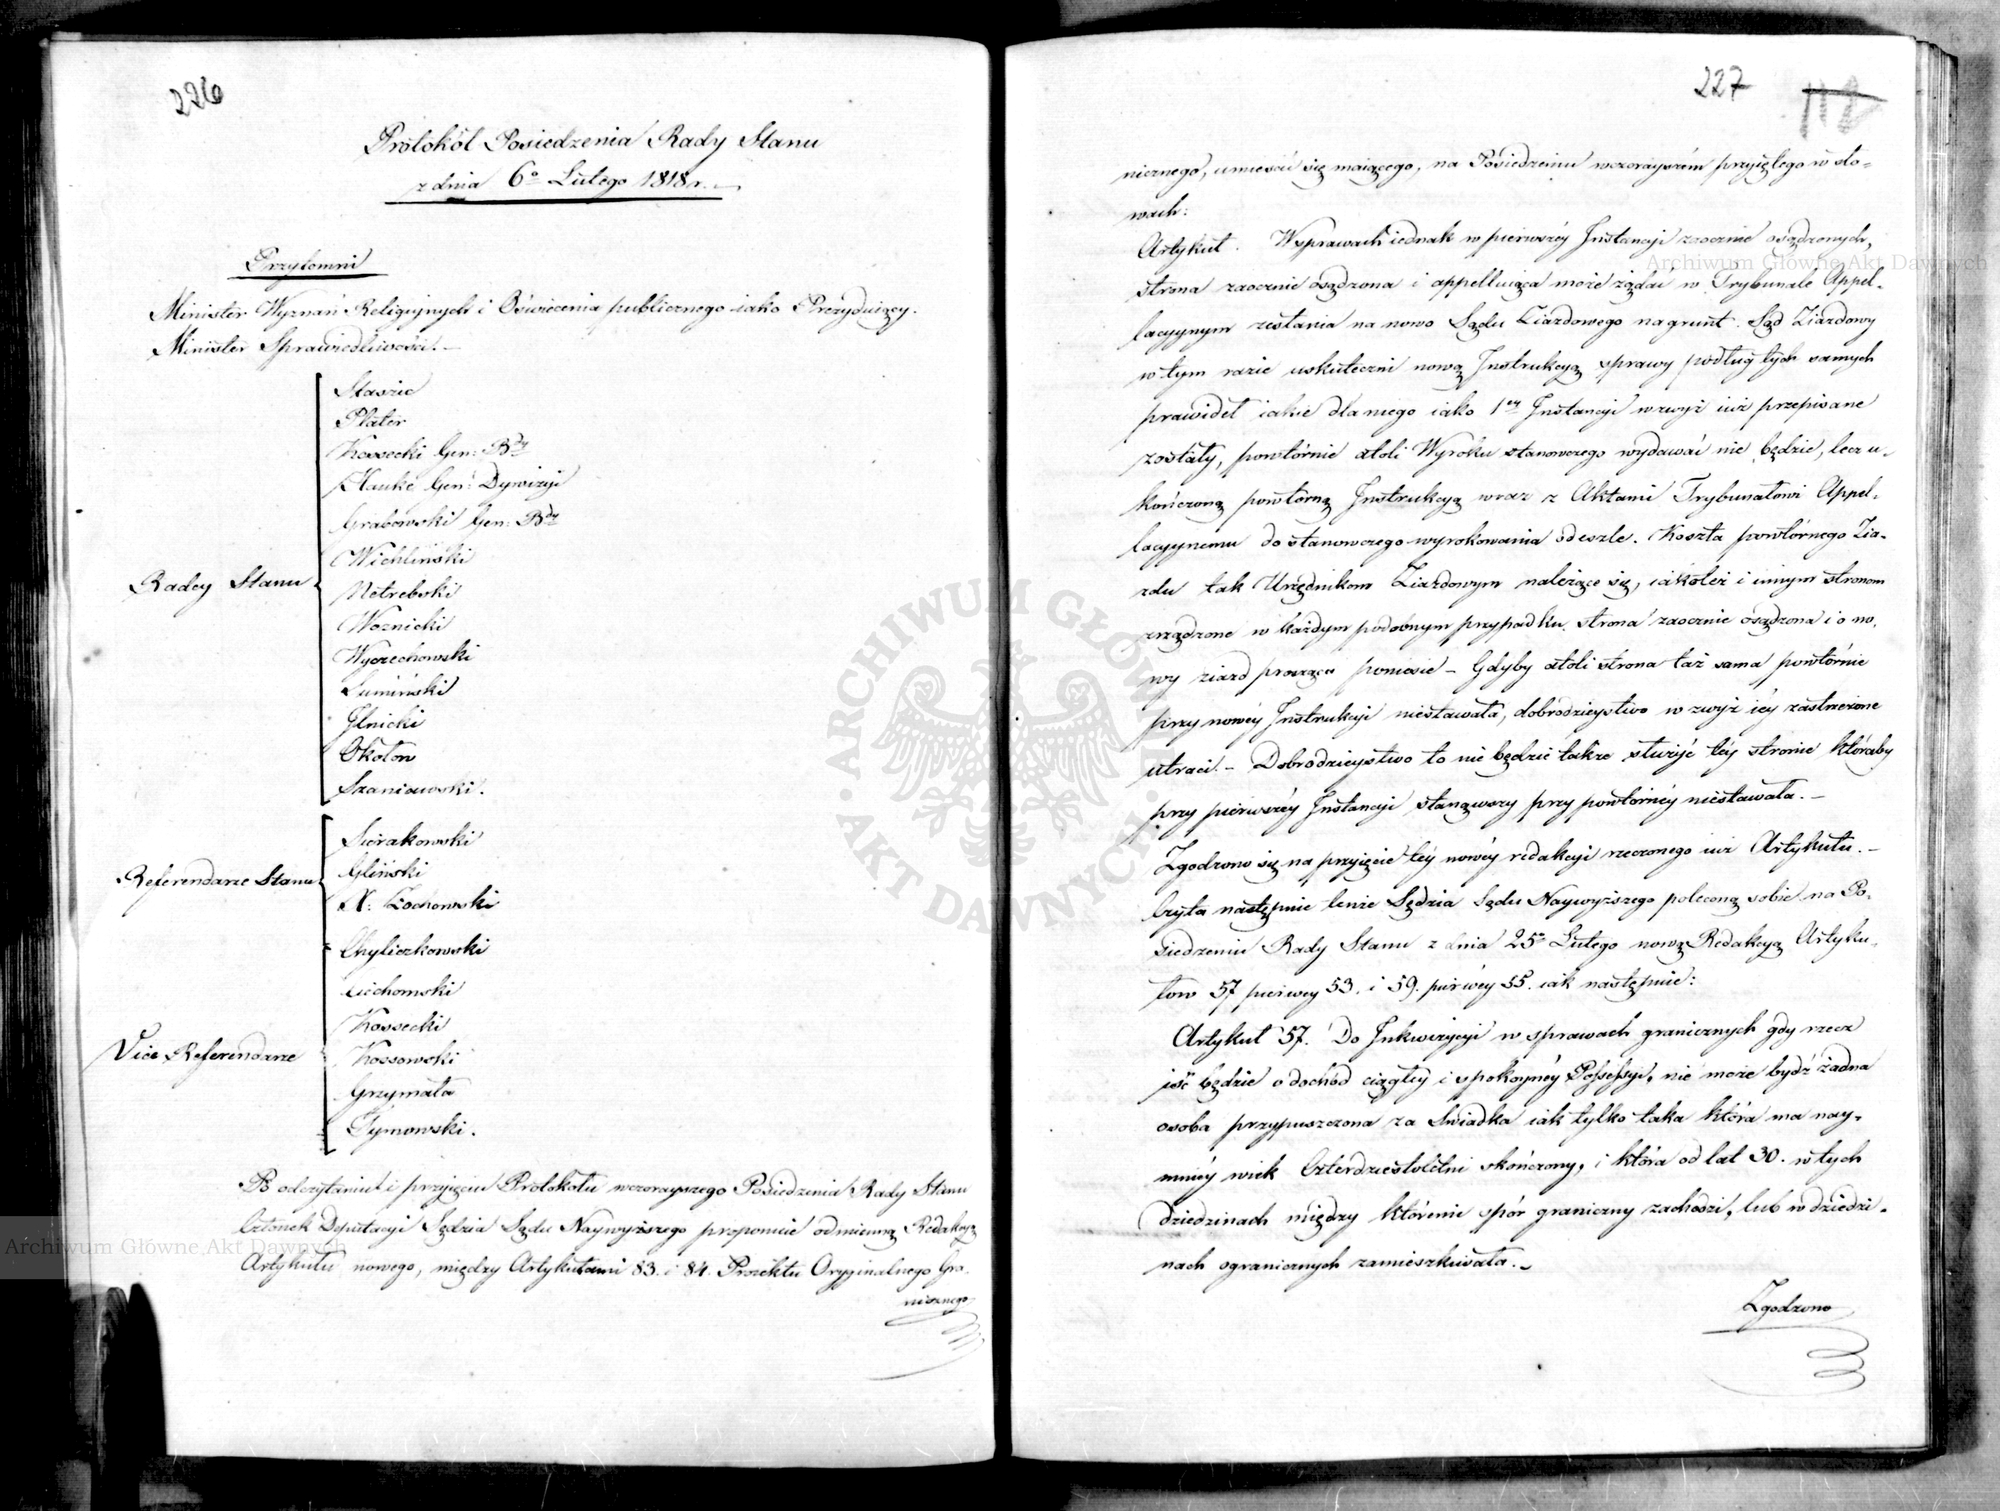 226
Protokół Posiedzenia Rady Stanu
z dnia 6o Lutego 1818 r.
Przytomni
Minister Wyznań Religijnych i Oświecenia publicznego iako Prezyduiący.
Minister Sprawiedliwości. —
Radcy Stanu
Staszic
Plater
Kossecki Gen: Bdy
Hauke Gen: Dywizyi
Grabowski Gen: Bdy
Wichliński
Nötrebski
Woznicki
Wyczechowski
Sumiński
Ilnicki
Okołow
Szaniawski.
Referendarze Stanu
Sierakowski
Gliński
X: Żochowski
Vice Referendarze
Chyliczkowski
Ciechomski
Kossecki
Kossowski
Grzymała
Tymowski.
Po odczytaniu i przyięciu Protokołu wczorayszego Posiedzenia Rady Stanu
Członek Deputacyi Sędzia Sądu Naywyższego proponuie odmienną Redakcyą
Artykułu nowego, między Artykułami 83. i 84. Proiektu Oryginalnego Gra-
nicznego
227
112
nicznego, umieścić się maiącego, na Posiedzeniu wczorayszém przyiętego w sło-
wach:
Artykuł. W sprawach iednak w pierwszéy Instancyi zaocznie osądzonych,
strona zaocznie osądzona i appelluiąca może żądać w Trybunale Appel-
lacyynym zesłania na nowo Sądu Ziazdowego na grunt. Sąd Ziazdowy
w tym razie uskuteczni nową Instrukcyą sprawy podług tych samych
prawideł iakie dla niego iako 1ey Instancyi wzwyż iuż przepisane
zostały, powtórnie atoli Wyroku stanowczego wydawać nie będzie, lecz u-
kończoną powtórną Instrukcyą wraz z Aktami Trybunałowi Appel-
lacyynemu do stanowczego wyrokowania odeszle. Koszta powtórnego Zia-
zdu tak Urzędnikom Ziazdowym należące się, iakoteż i innym stronom
zrządzone w każdym podobnym przypadku, strona zaocznie osądzona i o no-
wy ziazd prosząca poniesie — Gdyby atoli strona taż sama powtórnie
przy nowéy Instrukcyi niestawała, dobrodzieystwo wzwyż iéy zastrzeżone
utraci. — Dobrodzieystwo to nie będzie także służyć téy stronie któraby
przy pierwszéy Instancyi stanąwszy przy powtórnéy niestawała. —
Zgodzono się na przyięcie téy nowéy redakcyi rzeczonego iuż Artykułu. —
Czyta następnie tenże Sędzia Sądu Naywyższego poleconą sobie na Po-
siedzeniu Rady Stanu z dnia 25o Lutego nową Redakcyą Artyku-
łow 57 pierwey 53. i 59. pierwéy 55. iak następuie:
Artykuł 57. Do Inkwizycyi w sprawach granicznych gdy rzecz
iść będzie o dochód ciągłéy i spokoynéy Possessyi, nie może bydź żadna
osoba przypuszczona za Świadka iak tylko taka która ma nay-
mniéy wiek Czterdziestoletni skończony, i która od lat 30. w tych
dziedzinach między któremi spór graniczny zachodzi, lub w dziedzi-
nach ogranicznych zamieszkiwała. —
Zgodzono
Archiwum Główne Akt Dawnych
Archiwum Główne Akt Dawnych
ARCHIWUM GŁÓWNE · AKT DAWNYCH ·